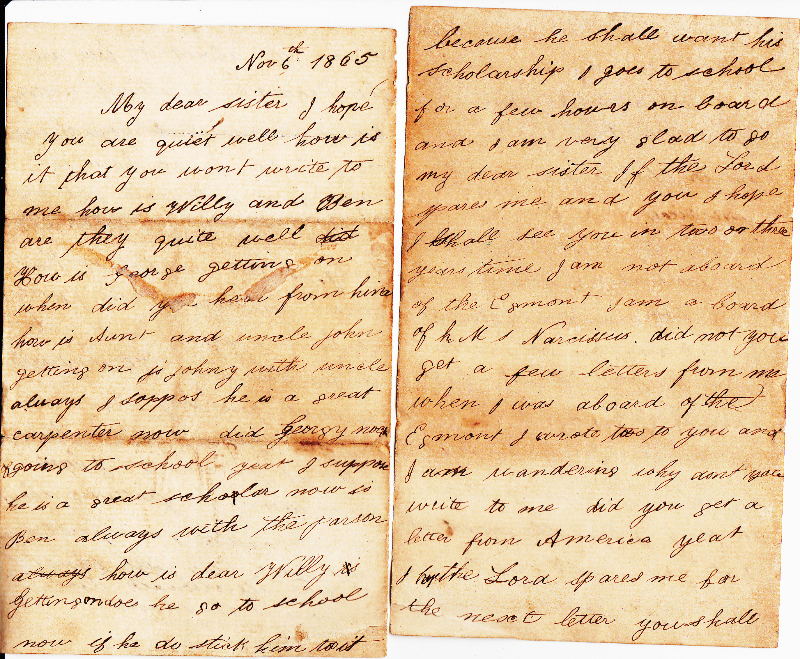 Nov 6th 1865
My dear sister I hope
you are quiet well how is
it that you wont write to
me how is Willy and Ben
are they quite well did
How is George getting on
when did you hear from him
how is Aunt and uncle John
getting on is johny with uncle
always I suppos he is a great
carpenter now did Georgy
going to school yeat I suppose
he is a great scholar now is
Ben always with the parson
always how is dear Willy is
getting on does he go to school
now if he do stick him to it
because he shall want his
scholarship I goes to school
for a few hours on board
and I am very glad to go
my dear sister If the Lord
spares me and you I hope
I shall see you in two or three
years time I am not aboard
of the Egmont I am a board
of h M S Narcissus. did not you
get a few letters from me
when I was aboard of the
Egmont I wrote two to you and
I am wandering why dont you
write to me did you get a
letter from America yeat
I the Lord spares me for
the next letter you shall